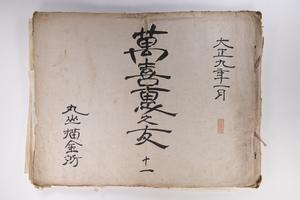 大正九年一月
萬喜重之友 十一
丸山描金所